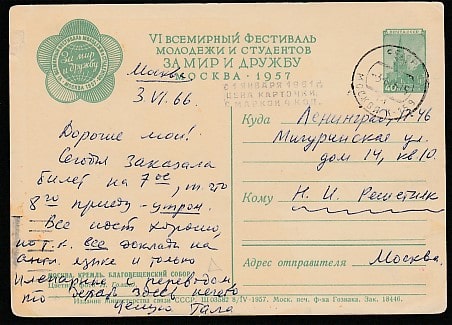 VI ВСЕМИРНЫЙ ФЕСТИВАЛЬ
МОЛОДЕЖИ И СТУДЕНТОВ
ЗА МИР И ДРУЖБУ
МОСКВА · 1957
За мир
и дружбу
40
С 1 ЯНВАРЯ 1961 г.
ЦЕНА КАРТОЧКИ
С МАРКОЙ 4 КОП.
Москва
3.VI.66.
Дорогие мои!
Сегодня заказала
билет на 7ое, т. что
8го приеду - утром.
Все идет хорошо,
но т.к. все доклады на
англ. языке и только
с переводом,
то здесь нечего
Целую Гала
Куда Ленинград, Л-46
Мичуринская ул.
дом 14, кв 10.
Кому Н. И.
Адрес отправителя Москва.
МОСКВА. КРЕМЛЬ. БЛАГОВЕЩЕНСКИЙ СОБОР
Издание Министерства связи СССР. 8/IV-1957. Моск. печ. ф-ка Гознака. Зак. 18446.